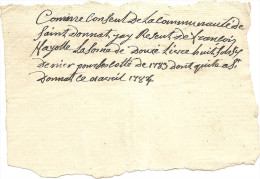 Comme Consul de la Communauté de
Saint donnat jay Reseut de francois
Fayolle La Some de Douze Livre huit sols six
denier pour sa Cotte de 1783 dont quite a St
Donnat ce avril 1784